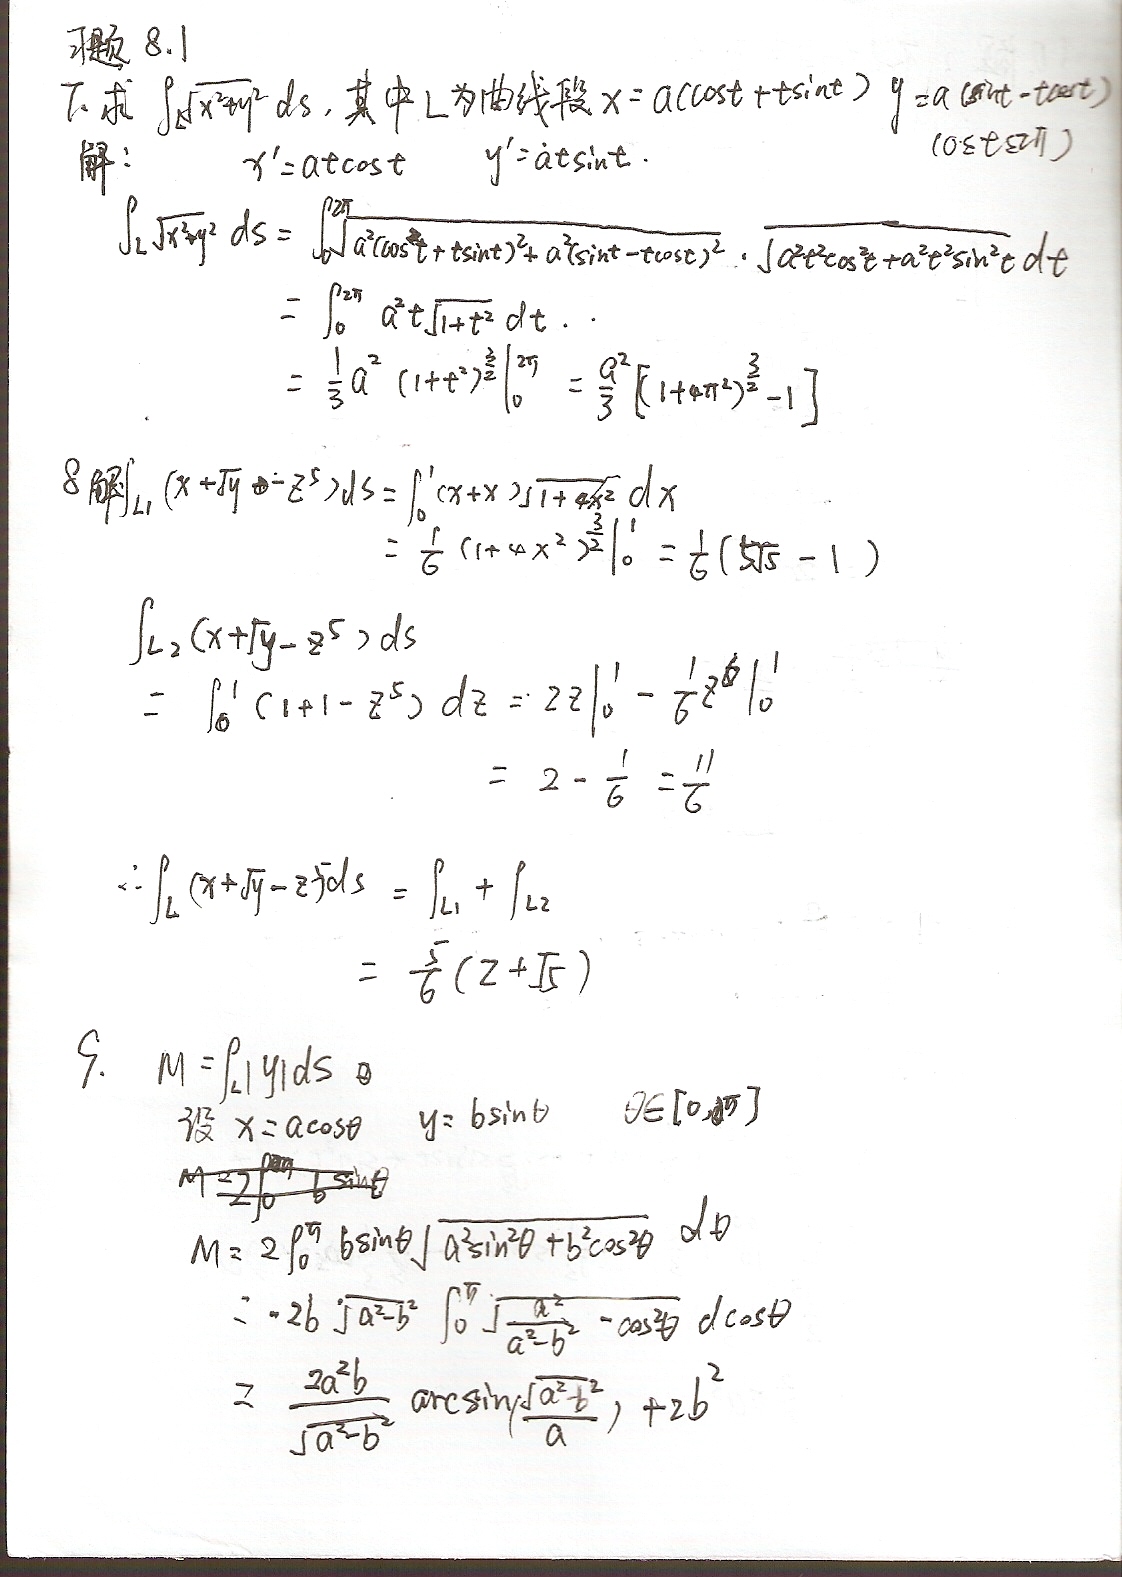 习题 8.1
7. 求 ∫_L √(x²+y²) ds, 其中L为曲线段 x = a(cost + tsint) y = a(sint - tcost)
(0≤t≤2π)
解: x' = atcost y' = atsint.
∫_L √(x²+y²) ds = ∫₀^{2π} √(a²(cost + tsint)² + a²(sint - tcost)²) · √(a²t²cos²t + a²t²sin²t) dt
= ∫₀^{2π} a²t√(1+t²) dt ..
= 1/3 a² (1+t²)^{3/2} |₀^{2π} = a²/3 [(1+4π²)^{3/2} - 1]
8 解 ∫_{L1} (x + √y - z⁵) ds = ∫₀¹ (x+x)√(1+4x²) dx
= 1/6 (1+4x²)^{3/2} |₀¹ = 1/6 (5√5 - 1)
∫_{L2} (x + √y - z⁵) ds
= ∫₀¹ (1+1-z⁵) dz = 2z|₀¹ - 1/6 z⁶|₀¹
= 2 - 1/6 = 11/6
∴ ∫_L (x + √y - z⁵) ds = ∫_{L1} + ∫_{L2}
= 5/6 (2 + √5)
9. M = ∫_L |y| ds
设 x = acosθ y = bsinθ θ∈[0, 2π]
M = 2∫₀^π bsinθ √(a²sin²θ + b²cos²θ) dθ
= -2b √(a²-b²) ∫₀^π √(a²/(a²-b²) - cos²θ) dcosθ
= 2a²b/√(a²-b²) arcsin(√(a²-b²)/a) + 2b²